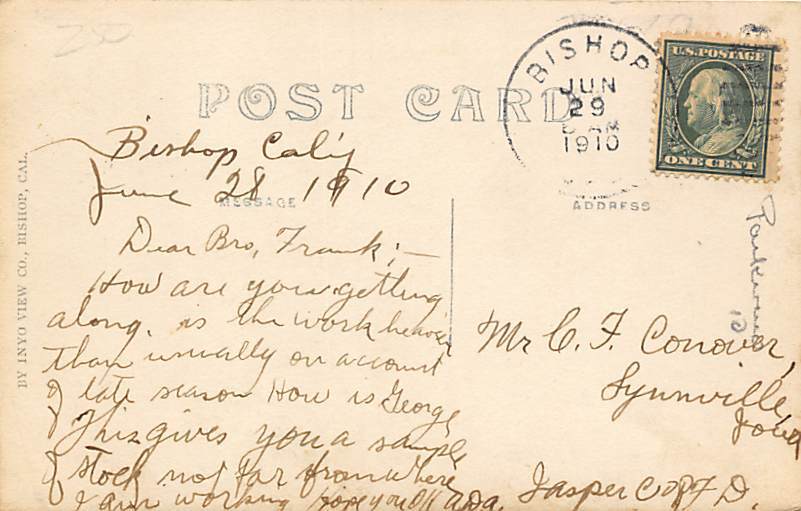 BISHOP
JUN
29
AM
1910
U.S. POSTAGE
ONE CENT
POST CARD
MESSAGE
ADDRESS
BY INYO VIEW CO., BISHOP, CAL.
Bishop Calif
June 28 1910
Dear Bro, Frank;—
How are you getting
along. is the work heavier
than usually on account
of late season How is George
This gives you a sample
of stock not far from where
I am working hope you
Mr C. F. Conover,
Lynnville,
Iowa
Jasper Co R F D.